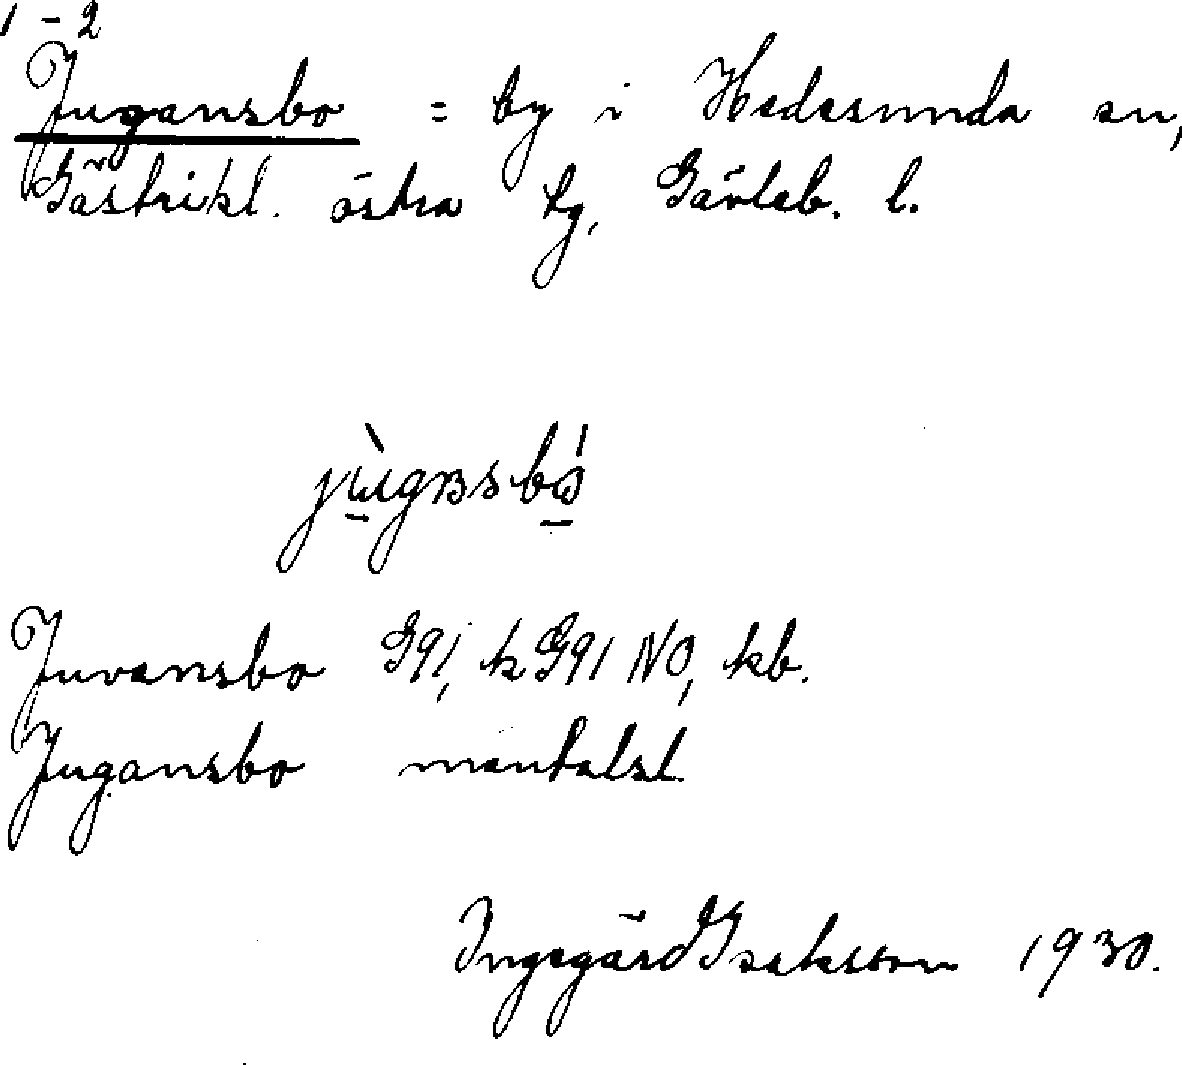 1-2
Jugansbo = by i Hedesunda sn,
Gästrikl. östra tg, Gävleb. l.
Juvansbo G91, k G91 NO, kb.
Jugansbo mantalsl.
Ingegärd Isaksson 1930.